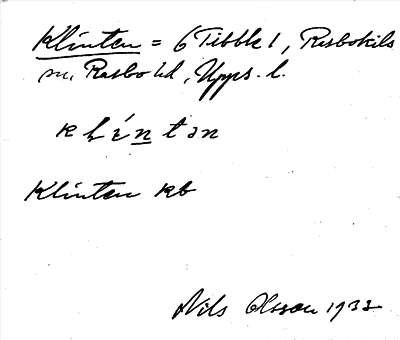 Klinten = 6 Tibble 1, Rasbokils
sn, Rasbo hd, Upps. l.
klíntən
Klinten kb
Nils Olsson 1933